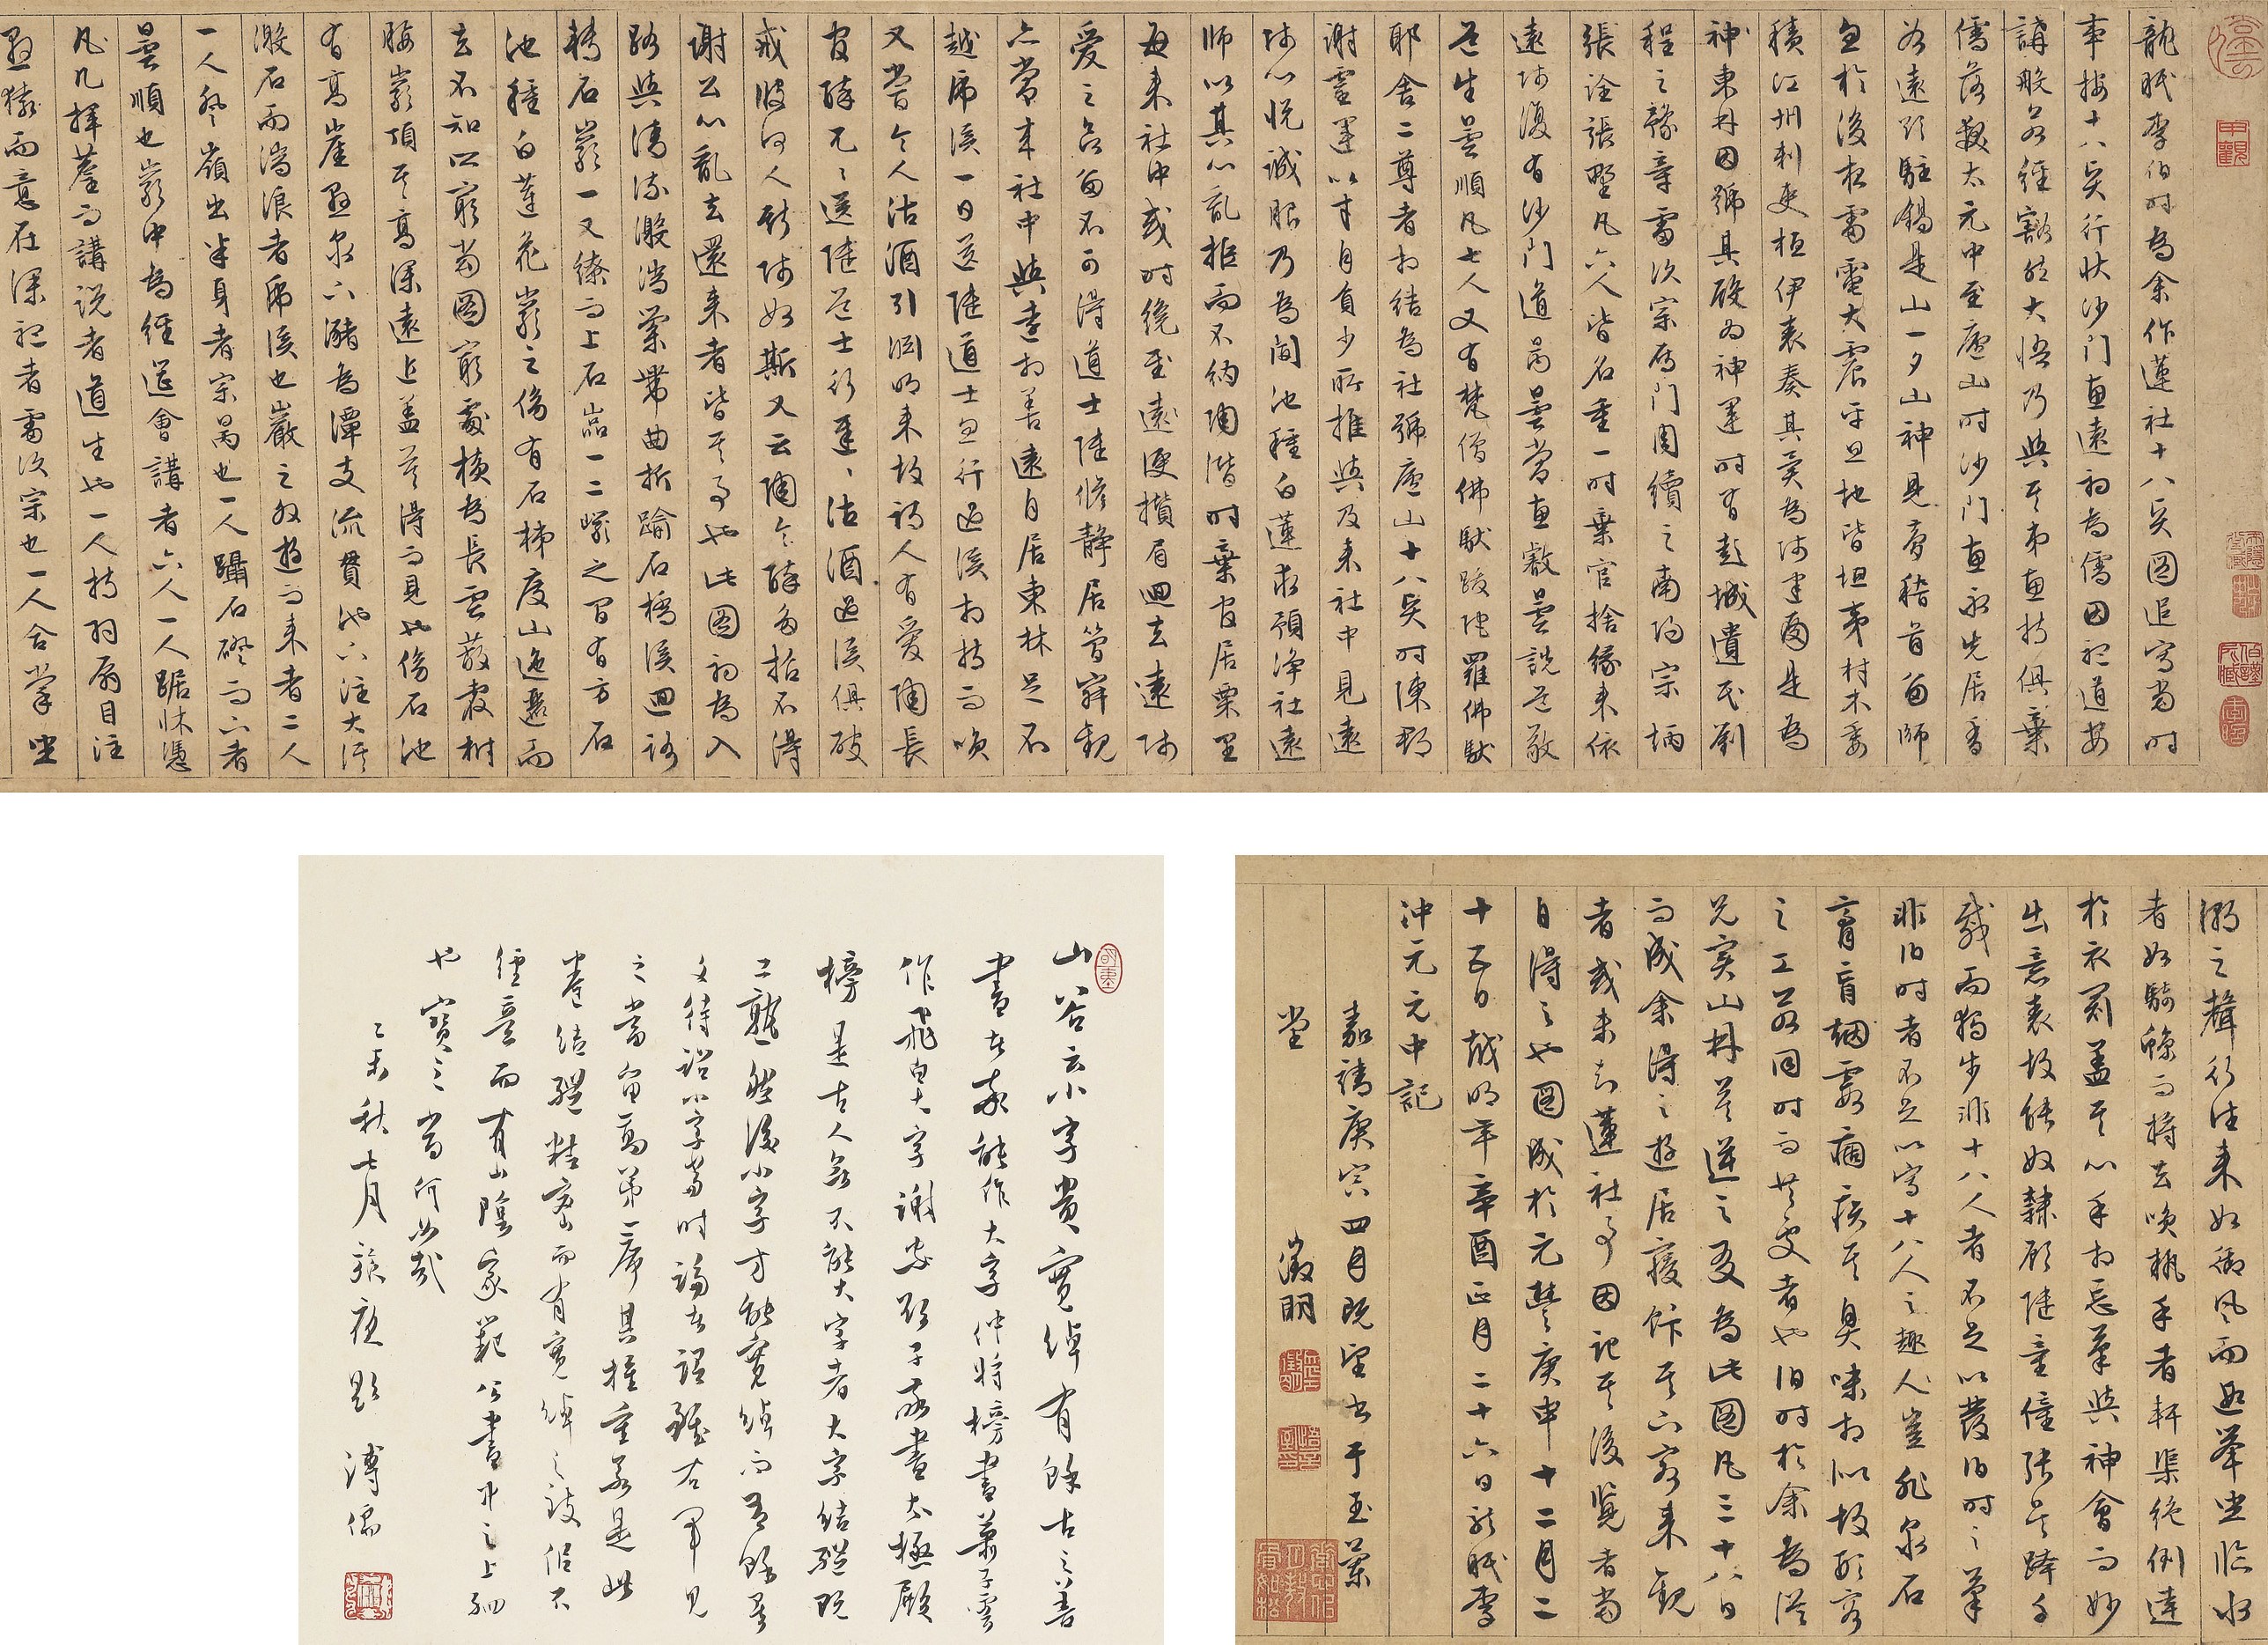 龍眠李伯时為余作蓮社十八賢圖追写當时
事按十八賢行狀沙门惠遠初為儒因聽道安
講般若經豁然大悟乃與其弟惠持俱棄
儒落髮太元中至廬山时沙门惠永先居香
谷遠欲駐錫是山一夕山神見夢稽首留師
忽於後夜雷電大震平旦地皆坦夷材木委
積江州刺史桓伊表奏其異為师建寺因是為
神來助因號其殿為神運时有彭城遺民劉
程之豫章雷次宗雁门周續之南陽宗炳
張詮張野凡六人皆名重一时棄官捨缘來依
遠师復有沙门道昺曇常惠叡曇詵道敬
道生曇順凡七人又有梵僧佛馱跋陀羅佛馱
耶舍二尊者相結為社號廬山十八賢时陳郡
謝靈運以才自負少所推與及來社中見遠
师心悦诚服乃為開池種白蓮求預淨社遠
師以其心亂拒而不納陶潜时棄官居栗里
每來社中或时纔至遠便攢眉迴去遠师
愛之欲留不可得道士陸修静居簡寂觀
亦常來社中與遠相善遠自居東林足不
越虎溪一日送陸道士忽行過溪相持而咲
又嘗令人沽酒引淵明來故詩人有愛陶長
官醉兀兀送陸道士行遲遲沽酒過溪俱破
戒彼何人斯师如斯又云陶令醉多招不得
謝公心亂去還來者皆其事也此圖初為入
路與清流激湍縈帶曲折踰石橋溪迴路
轉石巖一又繚而上石嵓一二巖之間有方石
池種白蓮花巖之傍有石梯度山迤邐而
去不知所窮當圖窮處横為長雲蔽覆樹
腰巖頂其高深遠近盖莫得而見也傍石池
有高崖懸泉下瀦為潭支流貫池下注大溪
激石而湍浪者虎溪也巖之外遊而來者二人
一人登嶺出半身者宗昺也一人躡石磴而下者
曇順也巖中為經筵會講者六人一人踞牀憑
几揮麈而講説者道生也一人持羽扇目注
懸猿而意在深聽者雷次宗也一人合掌坐
溺之聲行往來如御风而遐举坐臨水
者如騎鯨而将去咲執手者軒渠绝倒達
於衣冠盖其心手相忘筆與神會而妙
出意表故能奴隸顧陸童僕張吴跨千
载而獨步非十八人者不足以發伯时之筆
非伯时者不足以寫十八人之趣人豈非泉石
膏肓烟霞痼疾其臭味相似故形容
之工若同时而共處者也伯时於余為從
兄实山林莫逆之友為此圖凡三十八日
而成余得之遊居寢饭其下客來觀
者或未知蓮社事因记其後覽者當
自得之也圖成於元豐庚申十二月二
十五日越明年辛酉正月二十六日龍眠李
沖元元中記
嘉靖庚寅四月既望书于玉蘭
堂 徵明
山谷云小字貴寬绰有餘古之善
書者莫能作大字仲将榜書蕭子雲
作飛白大字謝安欲子敬書太極殿
榜是古人無不能大字者大字結體既
工然後小字方能寬绰而有餘
文待詔小字當时雖右軍見
之當留為第二席其推重若是此
卷结體精密而有寬绰之致佀不
經意而有山陰家範公書中之上駟
也寶之當何如哉
乙未秋七月夜題 溥儒